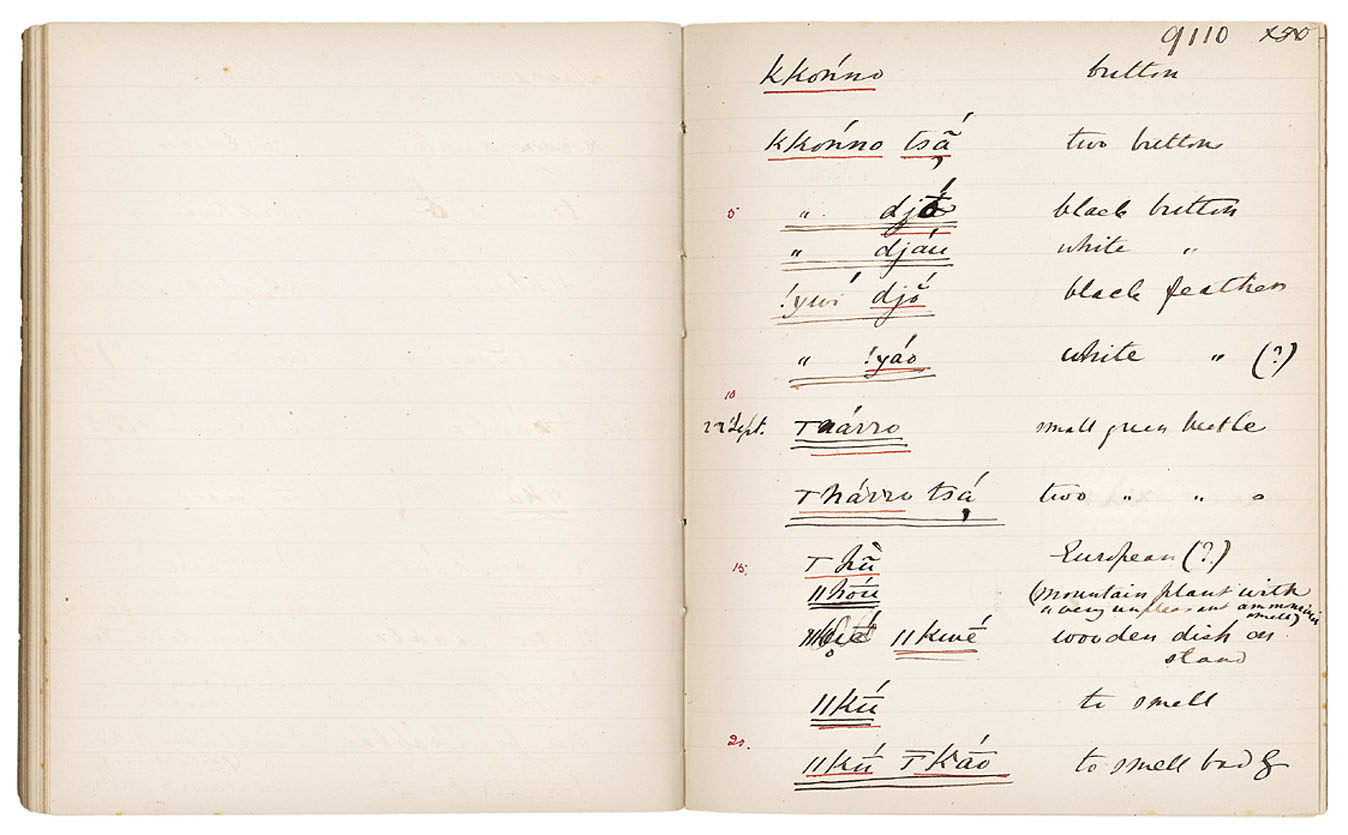 9110
kkońno button
kkońno tsã́ two buttons
5 " djṓ black button
" dján white "
!ywi djṓ black feathers
" !yáo white " (?)
10
22 Sept. T nárro small green beetle
T hárro tsá two " " s
15. T hũ̀ European (?)
ǁhóu (mountain plant with
a very unpleasant ammonia
smell)
ǁkwḗ wooden dish on
stand
ǁkū́ to smell
20. ǁkū́ T kāó to smell bad